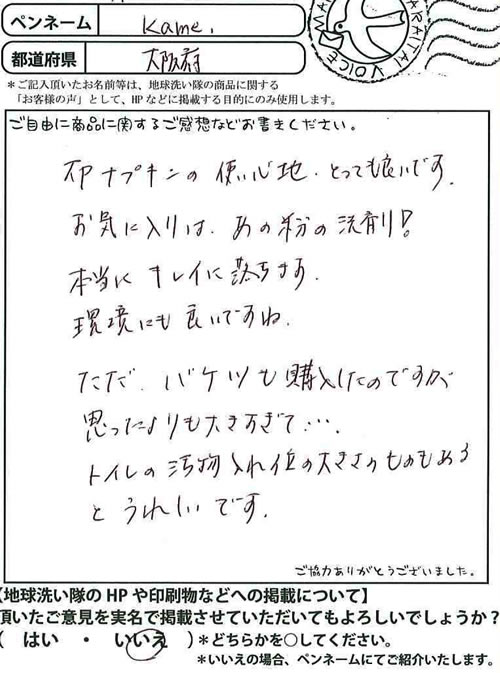 ペンネーム Kame.
都道府県 大阪府
＊ご記入頂いたお名前等は、地球洗い隊の商品に関する
「お客様の声」として、HPなどに掲載する目的にのみ使用します。
ARATAI VOICE
ご自由に商品に関するご感想などお書きください。
布ナプキンの使い心地、とっても良いです。
お気に入りは、あの粉の洗剤!
本当にキレイに落ちます。
環境にも良いですね。
ただ、バケツも購入したのですが
思ったよりも大きすぎて…。
トイレの汚物入れ位の大きさのものもある
とうれしいです。
ご協力ありがとうございました。
【地球洗い隊のHPや印刷物などへの掲載について】
頂いたご意見を実名で掲載させていただいてもよろしいでしょうか?
( はい ・ いいえ )＊どちらかを○してください。
＊いいえの場合、ペンネームにてご紹介いたします。